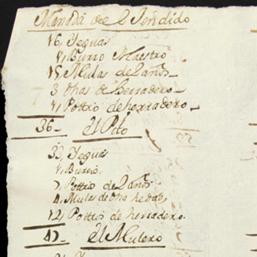 Manada de el Tendido
16, Yeguas
1, Burro Maestro
15, Mulas de 2 años
3 Dhas de herradero
1, Pottro de herradero
36— El Pito
32, Yeguas
1, Burro.
7, Pottro de 2 años
4, Mulas de
12, Pottros de herradero.
47— El Mulero